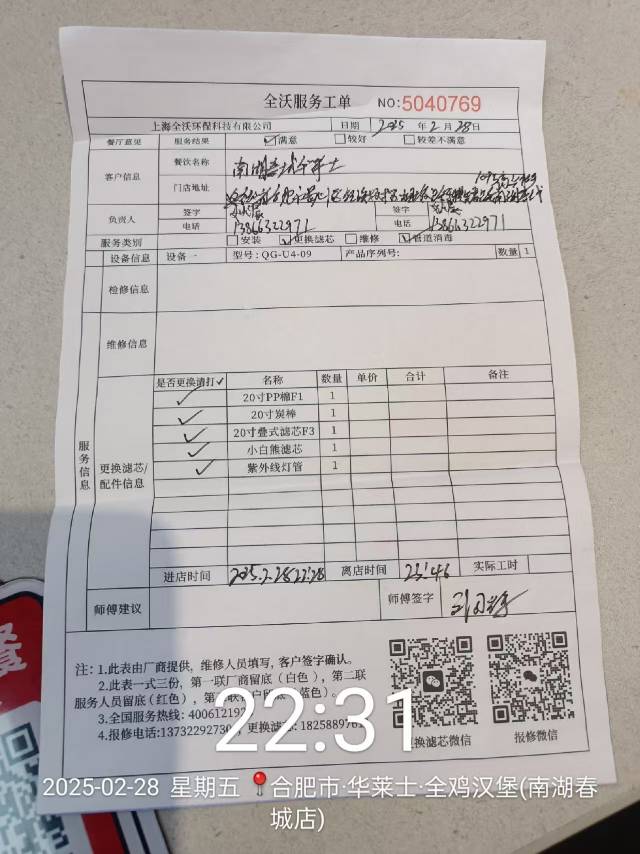 全沃服务工单 NO:5040769
上海全沃环保科技有限公司 日期 2025 年 2 月 28 日
餐厅意见 服务结果 ☑满意 □较好 □较差不满意
客户信息 餐饮名称 南湖春城华莱士
门店地址
负责人 签字 签字
电话 13866322971 电话 13866322971
服务类别 □安装 ☑更换滤芯 □维修 ☑管道消毒
设备信息 设备一 型号:QG-U4-09 产品序列号: 数量 1
检修信息
维修信息
服务信息
更换滤芯/配件信息
是否更换请打✓ 名称 数量 单价 合计 备注
✓ 20寸PP棉F1 1
✓ 20寸炭棒 1
✓ 20寸叠式滤芯F3 1
✓ 小白熊滤芯 1
✓ 紫外线灯管 1
进店时间 2025.2.28 22:28 离店时间 23:46 实际工时
师傅建议 师傅签字
注：1.此表由厂商提供，维修人员填写，客户签字确认。
2.此表一式三份，第一联厂商留底（白色），第二联
服务人员留底（红色），第
3.全国服务热线: 40061219
4.报修电话:1373229273 ，更换滤芯: 1825889761
换滤芯微信 报修微信
22:31
2025-02-28 星期五 合肥市·华莱士·全鸡汉堡(南湖春
城店)